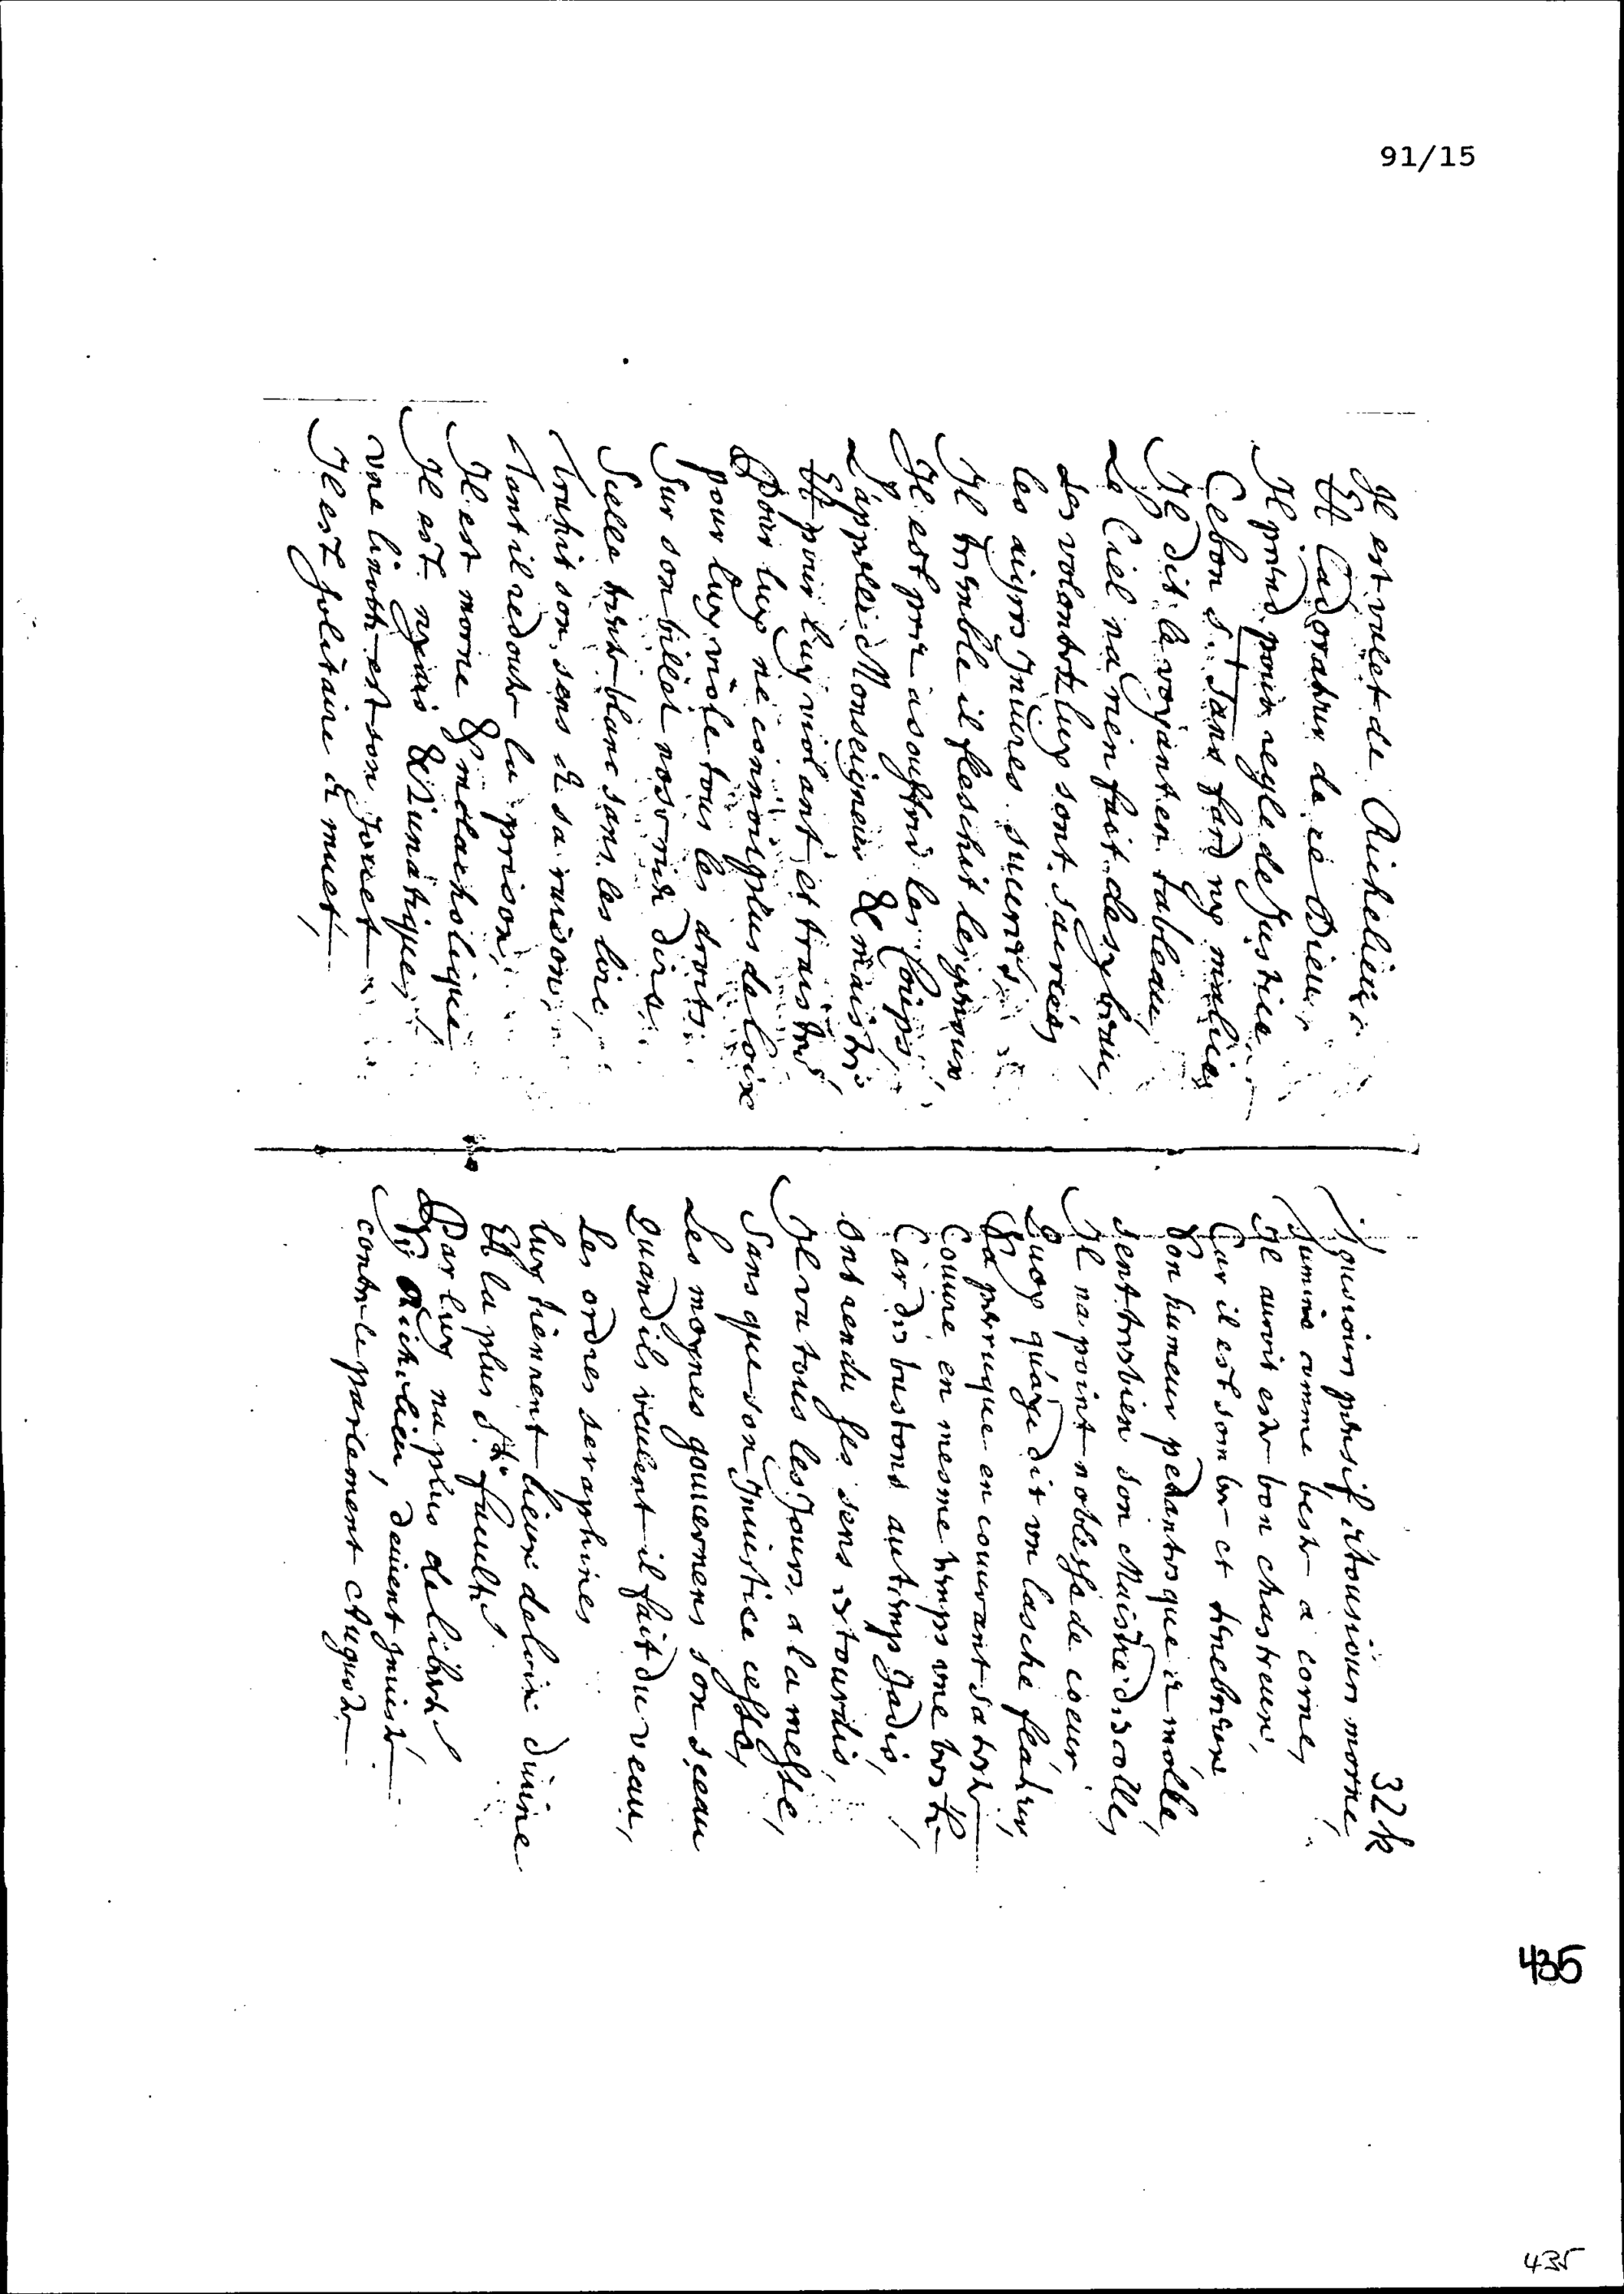 91/15
Il est valet de Richelieu
Et l'adorateur de ce Dieu,
Il prend pour regle de Justice
Ce bon st. sans fard ny malice
Il dit le voyant en tableau,
Le Ciel na rien fait de sy beau,
Les volontez luy sont sacrées
les aigres Iniures sucrées,
Il tremble il fleschit les genoux
Il est prest a souffrir les Coups,
L'appelle Monseigneur & maistre
Et pour luy violant et traistre
Pour luy ne connoist plus de loix
pour luy viole tous les droits
Sur son billet nose rien dire
Seelle trente blanc sans les lire,
Trahit son sens & sa raison,
Tant il redoute la prison,
Il est morne & melancholique
Il est niais & Lunatique,
vne linotte est son Jouet
Il est solitaire & muet,
32 k
Tousiours pensif & tousiours morne,
Rumine comme beste a corne,
Il auroit este bon chastreux,
Car il est sombre et tenebreux
Son humeur pedantesque & molle,
Sent tresbien son Maistre descolle,
Il na point noblesse de coeur
Quoy quaye dit vn lasche flateur,
Sa perruque en couurant sa teste
Couure en mesme temps vne beste
Car des bastons au temps Jadis,
Ont rendu ses sens estourdis,
Il va tous les Jours a la messe,
Sans que son Iniustice cesse,
Les moynes gouuernens son sceau
Quand ils veulent il fait du veau,
Les ordres seraphines
luy tiennent lieux de loix diuine
Et la plus ste. faculté
Par luy na plus de liberté
Richelieu deuient Iniuste
contre le parlement Auguste
435
435